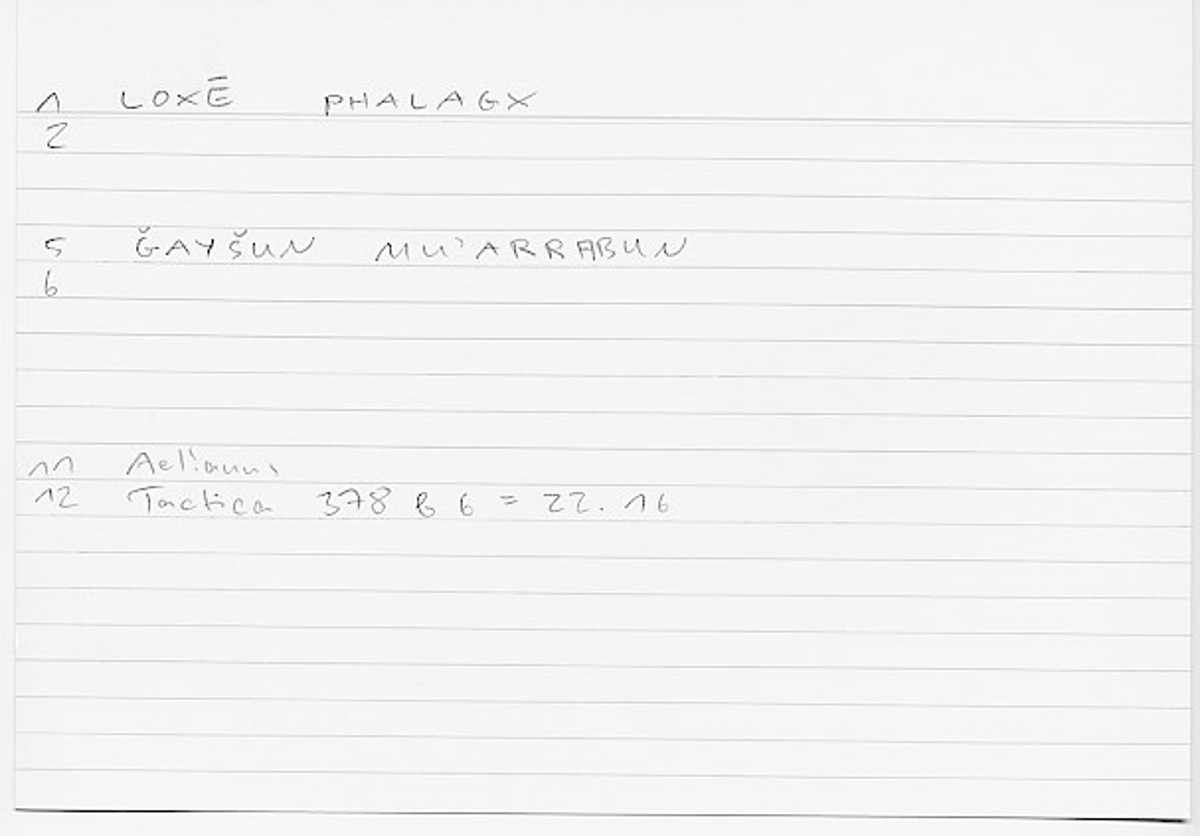 1 LOXĒ PHALAGX
2
5 ǦAYŠUN MU'ARRABUN
6
11 Aelianus
12 Tactica 378 B 6 = 22.16